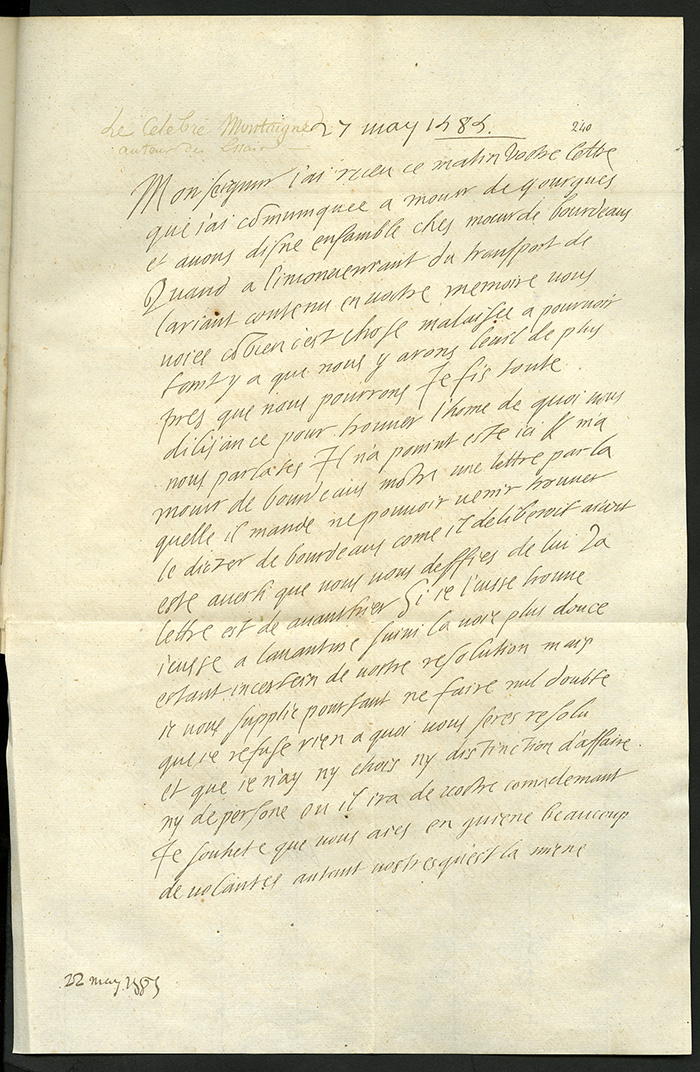 Le Celebre Montaigne 27 may 1585. 240
auteur des Essais
Monseigneur J'ai receu ce matin vostre lettre
que j'ai comuniquee a monsr de gourgues
et avons disné ensamble ches monsr de bourdeaus
Quand a l'inconveniant du transport de
l'arjant contenu en vostre memoire vous
voiés cõbien c'est chose malaisee a pourvoir
tant y a que nous y arons l'euil de plus
pres que nous pourrons Je fis toute
dilijance pour trouver l'home de quoi vous
nous parlates Il n'a pouint esté ici & m'a
monsr de bourdeaus mostré une lettre par la
quelle il mande ne pouvoir venir trouver
le dict sr de bourdeaus come il deliberoit aiant
esté averti que vous vous deffiés de lui La
lettre est de avanthier Si je l'eusse trouvé
j'eusse a l'avanture suivi la voie plus douce
estant incertein de vostre resolution mais
je vous supplie pourtant ne faire nul doubte
que je refuse rien a quoi vous serés resolu
et que je n'ay ny chois ny distinction d'affaire
ny de persone ou il ira de vostre comãdemant
Je souhete que vous aiés en guiene beaucoup
de volantés autant vostres qu'est la miene
22 may 1585